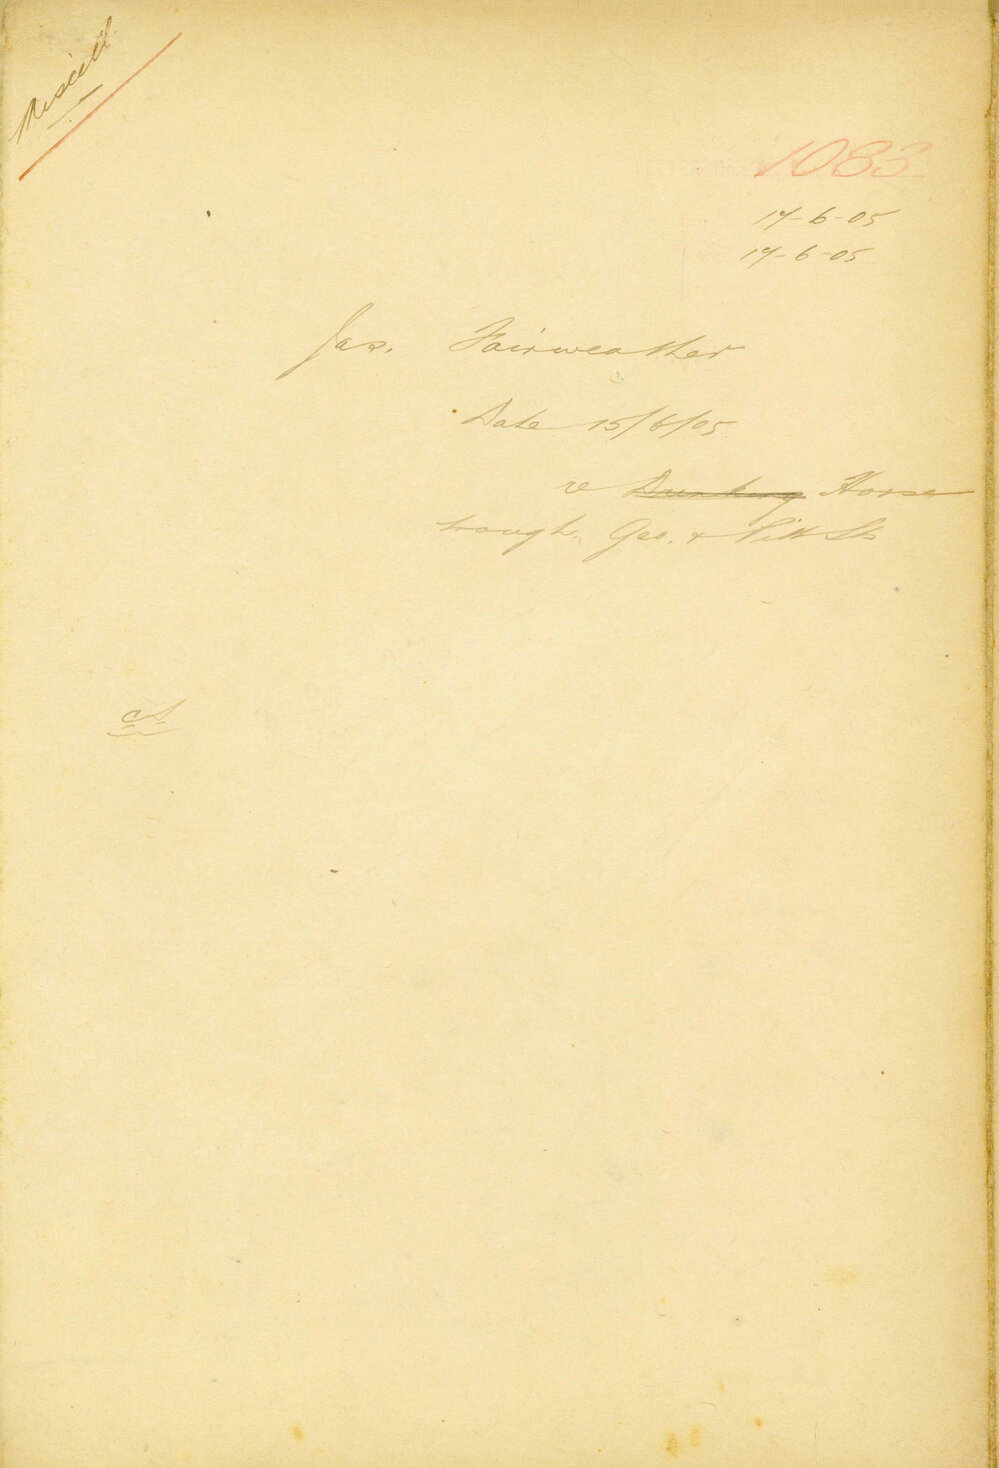 Miscell.
1083
17-6-05
17-6-05
Jas. Fairweather
Date 15/6/05
re Drinking Horse
trough. Geo. & Pitt Sts